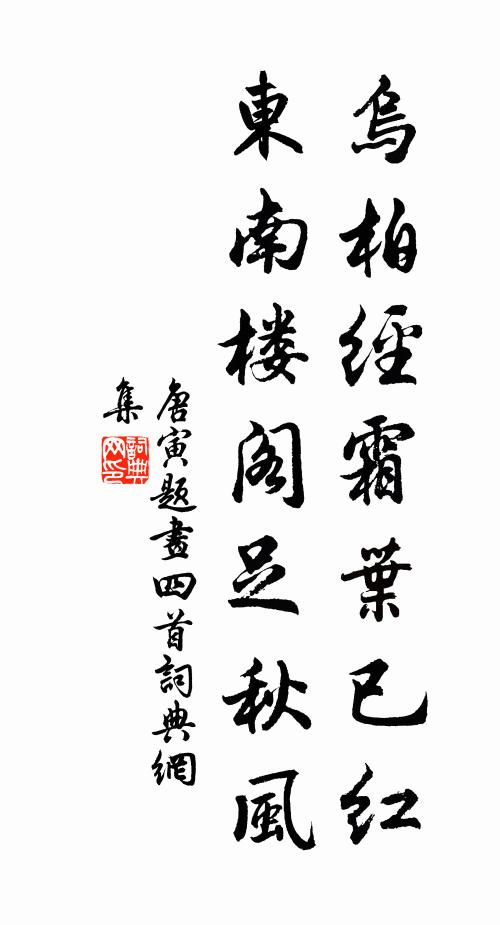 烏柏經霜葉已红
東南楼阁足秋風
唐寅題畫四首詞典網
集
詞典
网印